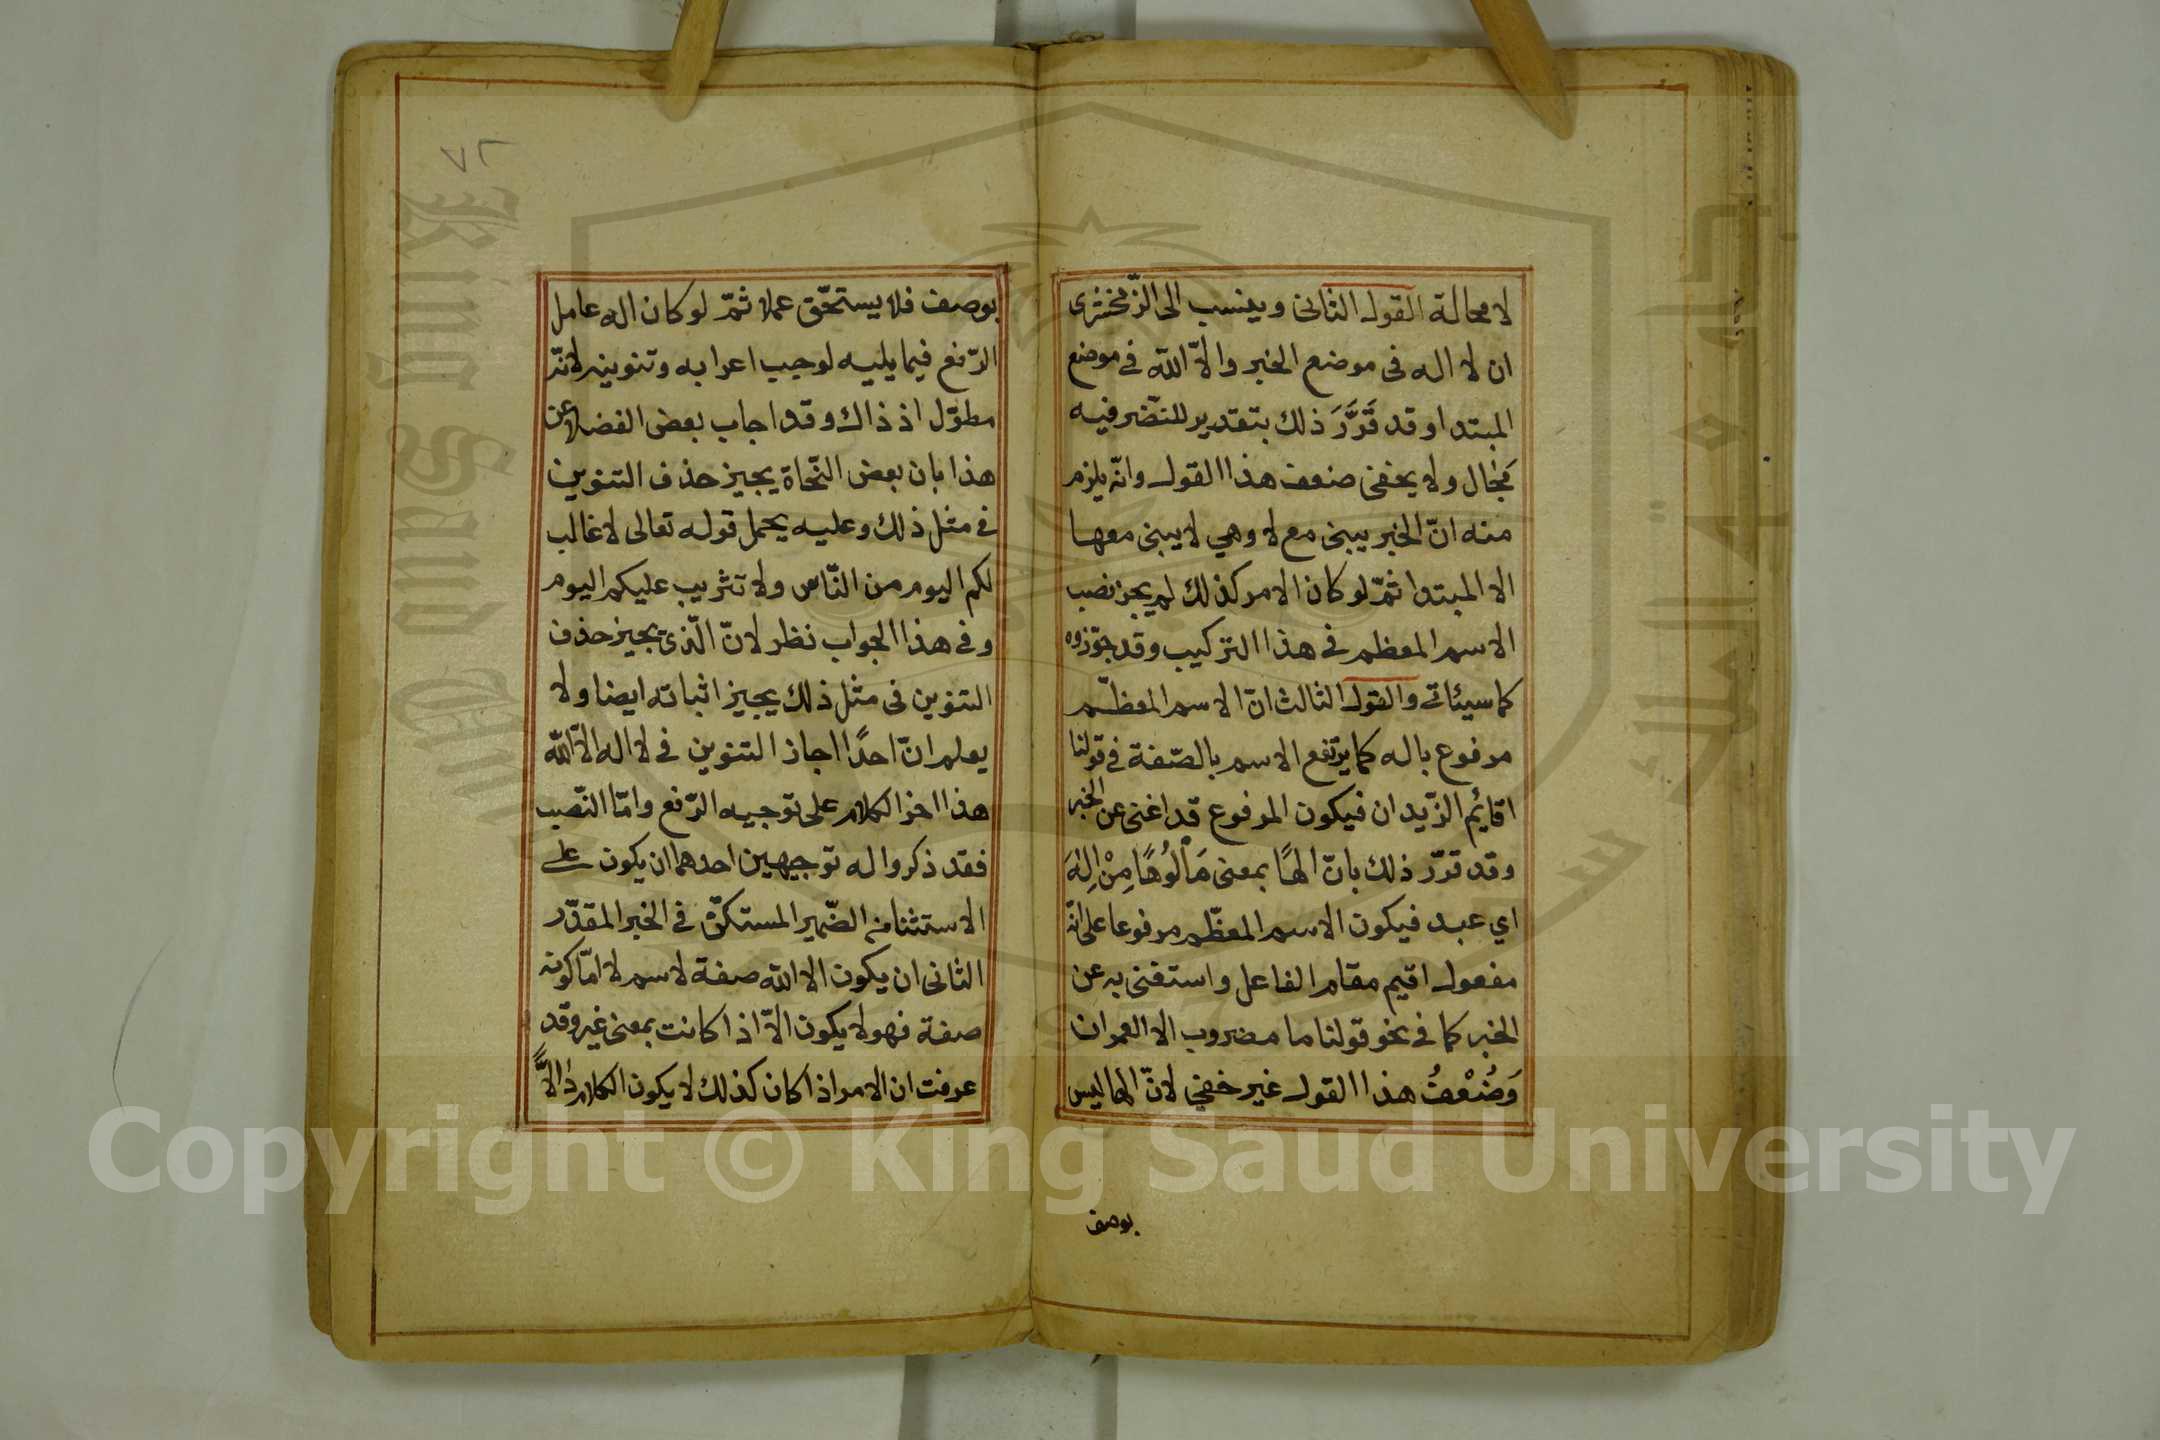 لا محالة القول الثانى وينسب الى الزّمخشرى
ان لا اله فى موضع الخبر والاّ اللّه فى موضع
المبتدا وقد قَرَّرَ ذلك بتقدير للنّضر فيه
مجال ولا يخفى ضعف هذا القول وانّه يلزم
منه انّ الخبر يبنى مع لا وهي لا يبنى معها
الا المبتدا ثمّ لو كان الامر كذلك لم يجز نصب
الاسم المعظم فى هذا التركيب وقد جوّزوه
كما سيئاتى والقول الثالث انّ الاسم المعظّم
مرفوع باله كما يرتفع الاسم بالصّفة فى قولنا
اقايُم الزّيدان فيكون المرفوع قد اغنى عن الخبر
وقد قرّر ذلك بانّ الهًا بمعنى مَاْلُوهًا مِنْ اِلٰهَ
اي عبد فيكون الاسم المعظّم مرفوعا على انّه
مفعول اقيم مقام الفاعل واستغنى به عن
الخبر كما فى نحو قولنا ما مضروب الا العمران
وَضُعْفُ هذا القول غير خفي لانّ الها ليس
بوصف
٧٢
بوصف فلا يستحّق عملا ثمّ لو كان اله عامل
الرّفع فيما يليه لوجب اعرابه وتنوينه لانّه
مطوّل اذ ذاك وقد اجاب بعض الفضلا عن
هذا بان بعض النّحاة يجيز حذف التنوين
فى مثل ذلك وعليه يحمل قوله تعالى لا غالب
لكم اليوم من النّاس ولا تثريب عليكم اليوم
وفى هذا الجواب نظر لانّ الّذى يجيز حذف
التنوين فى مثل ذلك يجيز اثباته ايضا ولا
يعلم انّ احدًا اجاز التنوين فى لا اله الاّ اللّه
هذا اخر الكلام على توجيه الرّفع وامّا النّصب
فقد ذكروا له توجيهين احدهما ان يكون على
الاستثنا من الضّمير المستكنّ فى الخبر المقدّر
الثانى ان يكون الا اللّه صفة لاسم لا امّا كونه
صفة فهو لا يكون الاّ اذا كانت بمعنى غير وقد
عرفت ان الامر اذا كان كذلك لا يكون الكلام
Copyright © King Saud University
King Saud University